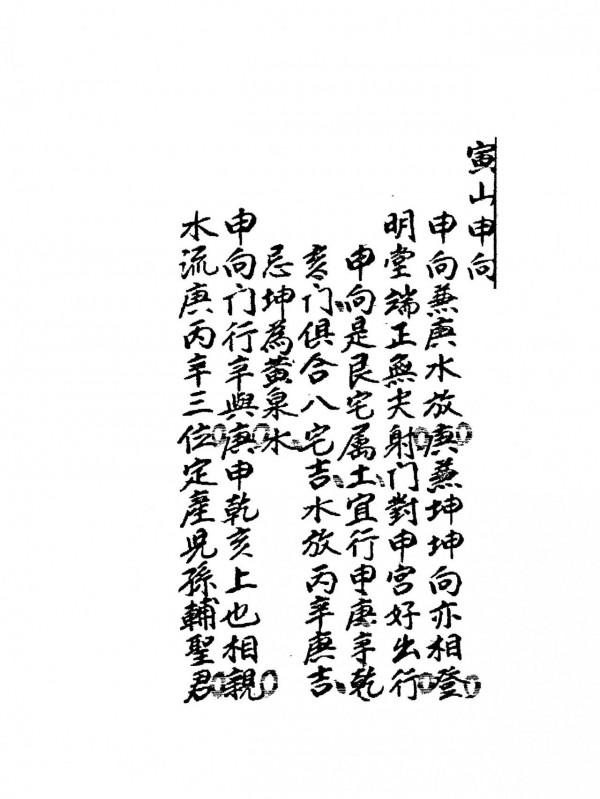 寅山申向
申向兼庚水放庚。兼坤坤向亦相登。
明堂端正無夫射。门對申宮好出行。
申向是艮宅属土、宜行申庚辛乾、
亥门俱合八宅吉、水放丙辛庚吉、
忌坤為黄泉水、
申向门行辛與庚。申乾亥上也相親。
水流庚丙辛三位。定產児孫輔聖君。